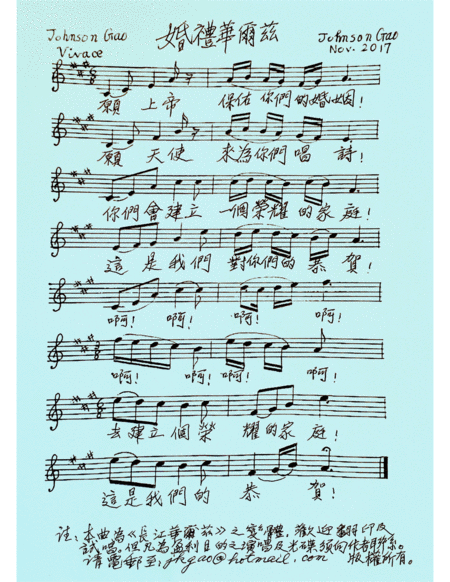 Johnson Gao
婚禮華爾茲
Johnson Gao
Vivace
Nov. 2017
願上帝 保佑你們的婚姻!
願天使 來為你們唱詩!
你們會建立一個榮耀的家庭!
這是我們對你們的恭賀!
啊! 啊! 啊! 啊!
啊! 啊! 啊! 啊!
去建立個榮耀的家庭!
這是我們的恭賀!
注:本曲為《長江華爾茲》之變體,歡迎翻印及
試唱。但凡為盈利目的之演唱及光碟須向作者聯系。
請電郵至:jhgao@hotmail.com 版權所有。